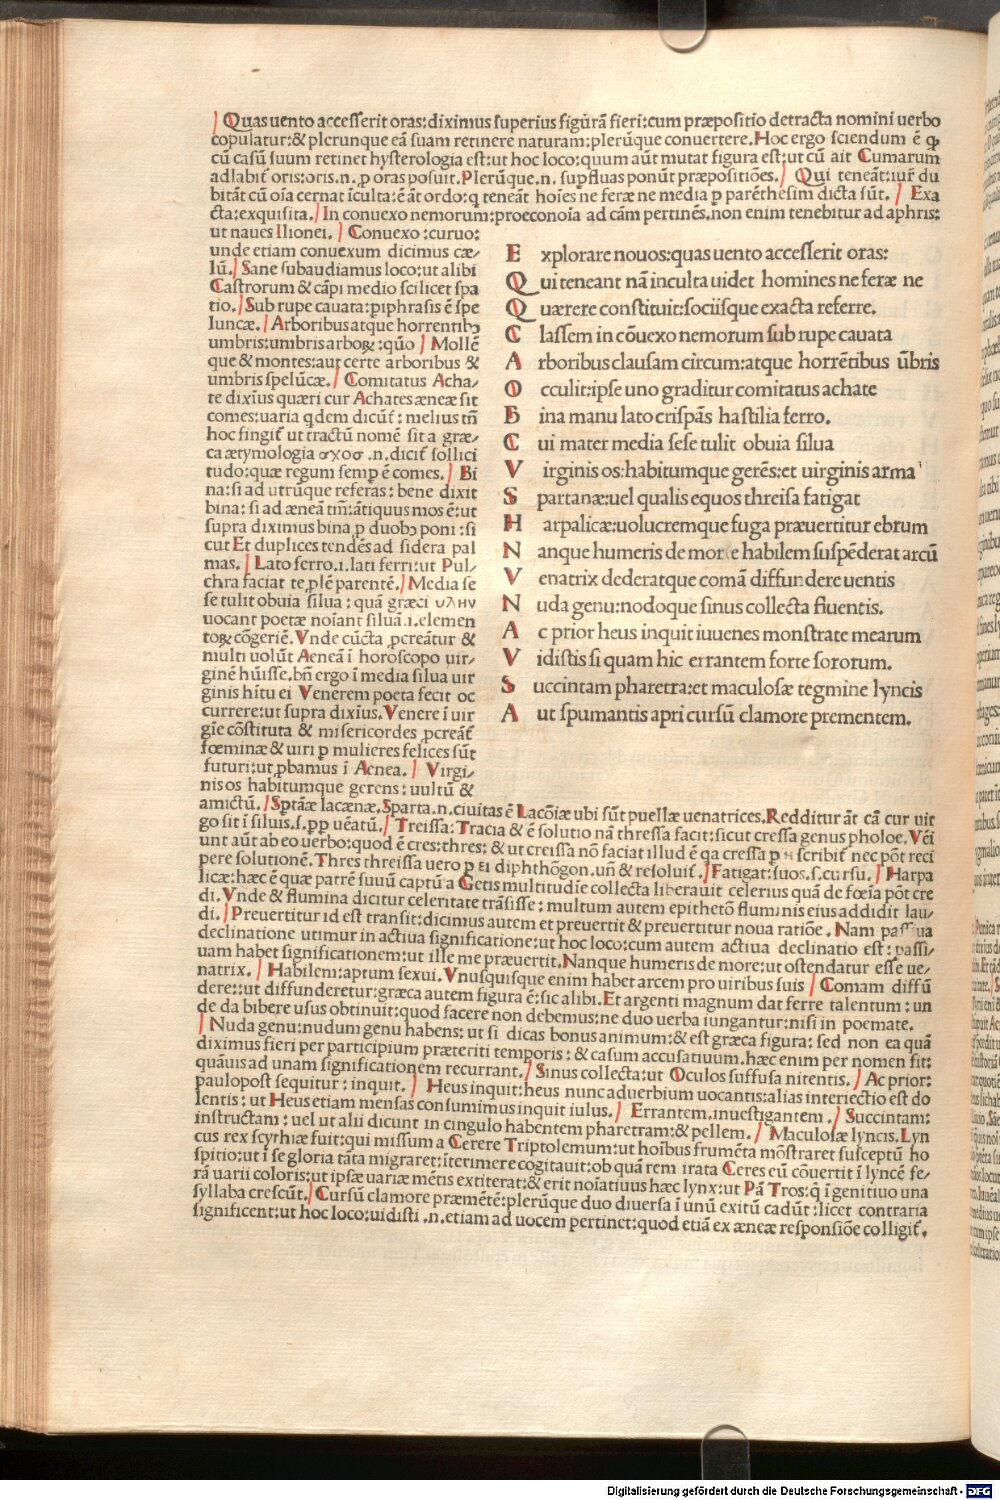 Quas uento accesserit oras: diximus superius figūrā fieri: cum præpositio detracta nomini uerbo
copulatur: & plerunque eā suam retinere naturam: plerūque conuertere. Hoc ergo sciendum ē ꝙ
cū casū suum retinet hysterologia est: ut hoc loco: quum aūt mutat figura est: ut cū ait Cumarum
adlabit̄ oris: oris .n. p oras posuit. Plerūque .n. supfluas ponūt præpositiões. Qui teneāt: iur̄ du
bitāt cū oīa cernat īculta: ē āt ordo: q teneāt hoīes ne feræ ne media p parēthesim dicta sūt. Exa
cta: exquisita. In conuexo nemorum: proeconoīa ad cām pertinēs. non enim tenebitur ad aphris:
ut naues Ilionei. Conuexo: curuo:
unde etiam conuexum dicimus cæ⸗
lū. Sane subaudiamus loco: ut alibi
Castrorum & cāpi medio scilicet spa
tio. Sub rupe cauata: piphrasis ē spe
luncæ. Arboribus atque horrentibꝫ
umbris: umbris arboꝝ: qūo Mollē
que & montes: aut certe arboribus &
umbris spelūcæ. Comitatus Acha⸗
te dixīus quæri cur Achates æneæ sit
comes: uaria qdem dicūt̄: melius tn̄
hoc fingit̄ ut tractū nomē sit a græ⸗
ca ætymologia αχοσ .n. dicit̄ sollici
tudo: quæ regum semp ē comes. Bi
na: si ad utrūque referas: bene dixit
bina: si ad æneā tm̄: ātiquus mos ē: ut
supra diximus bina p duobꝫ poni: si
cut Et duplices tendēs ad sidera pal
mas. Lato ferro .i. lati ferri: ut Pul⸗
chra faciat te ple parentē. Media se
se tulit obuia silua: quā græci υληυ
uocant poetæ noīant siluā .i. elemen
toꝝ cōgeriē. Vnde cūcta pcreātur &
multi uolūt Aeneā ī horoscopo uir⸗
ginē hūisse. bn̄ ergo ī media silua uir
ginis hītu ei Venerem poeta fecit oc
currere: ut supra dixīus. Venere ī uir
gīe cōstituta & misericordes pcreāt̄
fœminæ & uiri p mulieres felices sūt
futuri: ut pbamus ī Aenea. Virgi⸗
nis os habitumque gerens: uultū &
amictū. Sptāæ lacænæ. Sparta .n. ciuitas ē Lacōīæ ubi sūt puellæ uenatrices. Redditur āt cā cur uir
go sit ī siluis. s. pp uēatū. Treissa: Tracia & ē solutio nā thressa facit: sicut cressa genus pholoe. Vēi
unt aūt ab eo uerbo: quod ē cres: thres: & ut creissa nō faciat illud ē qa cressa p η scribit̄ nec pōt reci
pere solutionē. Thres threissa uero p ει diphthōgon. un̄ & resoluit̄. Fatigat: suos. s. cursu. Harpa
licæ: hæc ē quæ patrē suuū captū a Getis multitudīe collecta liberauit celerius quā de fœīa pōt cre
di. Vnde & flumina dicitur celeritate trāsisse: multum autem epithetō fluminis eius addidit lau⸗
di. Preuertitur id est transit: dicimus autem et preuertit & preuertitur noua ratiōe. Nam passiua
declinatione utimur in actiua significatione: ut hoc loco: cum autem actiua declinatio est: passi⸗
uam habet significationem: ut ille me præuertit. Nanque humeris de more: ut ostendatur esse ue⸗
natrix. Habilem: aptum sexui. Vnusquisque enim habet arcem pro uiribus suis Comam diffū
dere: ut diffunderetur: græca autem figura ē: sic alibi. Et argenti magnum dat ferre talentum: un
de da bibere usus obtinuit: quod facere non debemus: ne duo uerba iungantur: nisi in poemate.
Nuda genu: nudum genu habens: ut si dicas bonus animum: & est græca figura: sed non ea quā
diximus fieri per participium præteriti temporis: & casum accusatiuum. hæc enim per nomen fit:
quāuis ad unam significationem recurrant. Sinus collecta: ut Oculos suffusa nitentis. Ac prior:
paulopost sequitur: inquit. Heus inquit: heus nunc aduerbium uocantis: alias interiectio est do
lentis: ut Heus etiam mensas consumimus inquit iulus. Errantem. inuestigantem. Succintam:
instructam: uel ut alii dicunt in cingulo habentem pharetram: & pellem. Maculosæ lyncis. Lyn
cus rex scythiæ fuit: qui missum a Cerere Triptolemum: ut hoībus frumēta mōstraret susceptū ho
spitio: ut ī se gloria tāta migraret: īterimere cogitauit: ob quā rem irata Ceres eū cōuertit ī lyncē fe⸗
rā uarii coloris: ut ipse uariæ mētis extiterat: & erit noīatiuus hæc lynx: ut Pā Tros: q ī genitiuo una
syllaba crescūt. Cursū clamore præmētē: plerūque duo diuersa ī unū exitū cadūt: licet contraria
significent: ut hoc loco: uidisti .n. etiam ad uocem pertinet: quod etiā ex æneæ responsiōe colligit̄.
E xplorare nouos: quas uento accesserit oras:
Q ui teneant nā inculta uidet homines ne feræ ne
Q uærere constituit: sociisque exacta referre.
C lassem in cōuexo nemorum sub rupe cauata
A rboribus clausam circum: atque horrētibus ūbris
O cculit: ipse uno graditur comitatus achate
B ina manu lato crispās hastilia ferro.
C ui mater media sese tulit obuia silua
V irginis os: habitumque gerēs: et uirginis arma
S partanæ: uel qualis equos threisa fatigat
H arpalicæ: uolucremque fuga præuertitur ebrum
N anque humeris de more habilem suspēderat arcū
V enatrix dederatque comā diffundere uentis
N uda genu: nodoque sinus collecta fluentis.
A c prior heus inquit iuuenes monstrate mearum
V idistis si quam hic errantem forte sororum.
S uccintam pharetra: et maculosæ tegmine lyncis
A ut spumantis apri cursū clamore prementem.
Digitalisierung gefördert durch die Deutsche Forschungsgemeinschaft - DFG